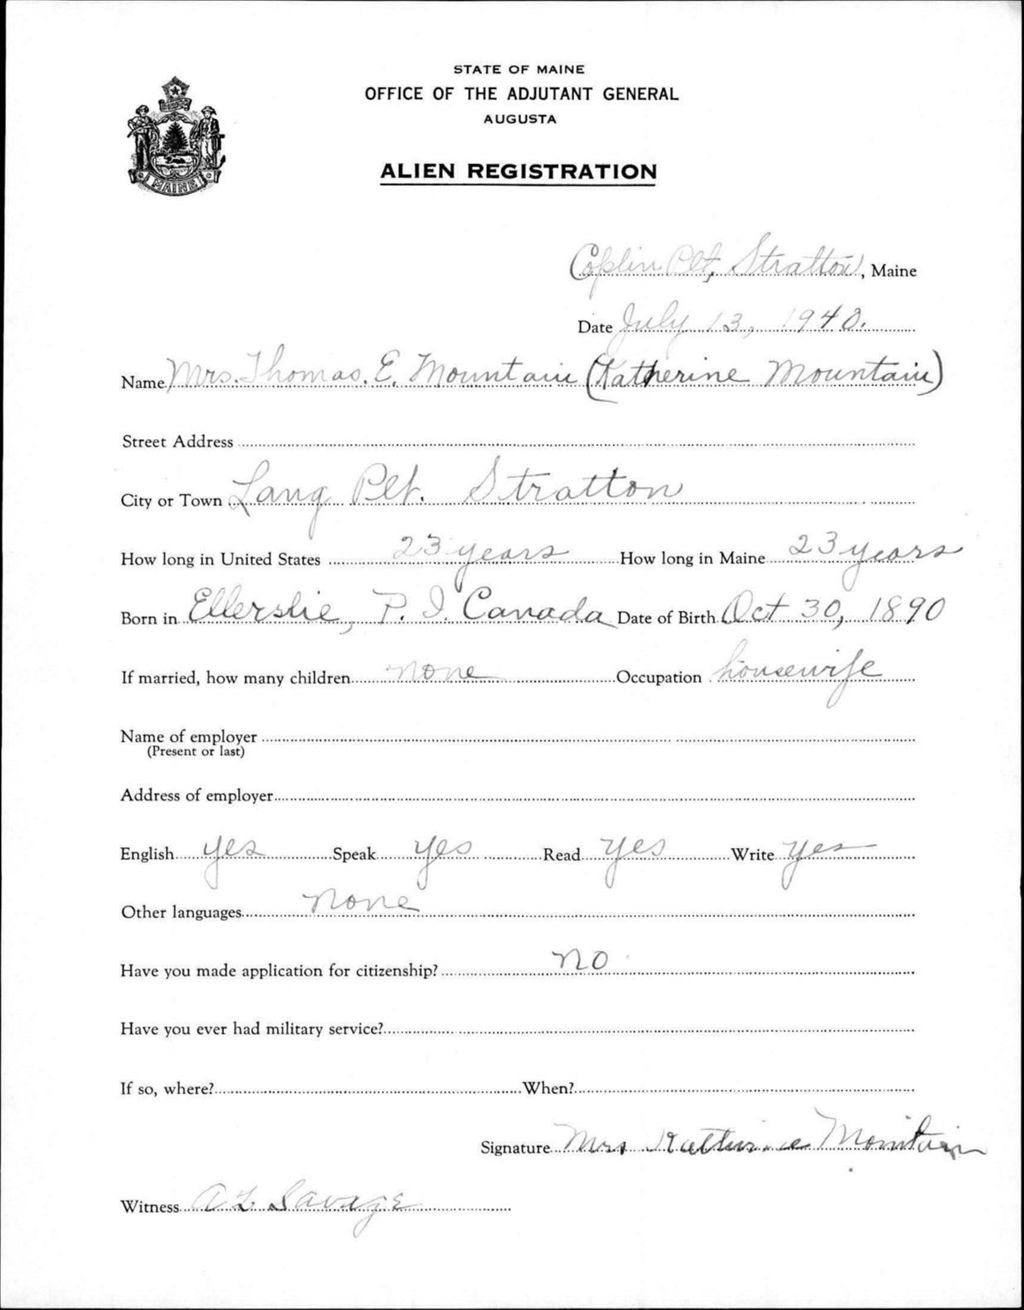 STATE OF MAINE
OFFICE OF THE ADJUTANT GENERAL
AUGUSTA
ALIEN REGISTRATION
MAINE
Coplin Plt, Stratton, Maine
Date July 13, 1940.
Name Mrs. Thomas. E. Mountain (Katherine Mountain)
Street Address
City or Town Lang Plt. Stratton
How long in United States 23 years How long in Maine 23 years
Born in Ellerslie, P. I. Canada Date of Birth Oct 30, 1890
If married, how many children none Occupation housewife
Name of employer
(Present or last)
Address of employer
English yes Speak yes Read yes Write yes
Other languages none
Have you made application for citizenship? no
Have you ever had military service?
If so, where? When?
Signature Mrs Katherine Mountain
Witness A L Savage